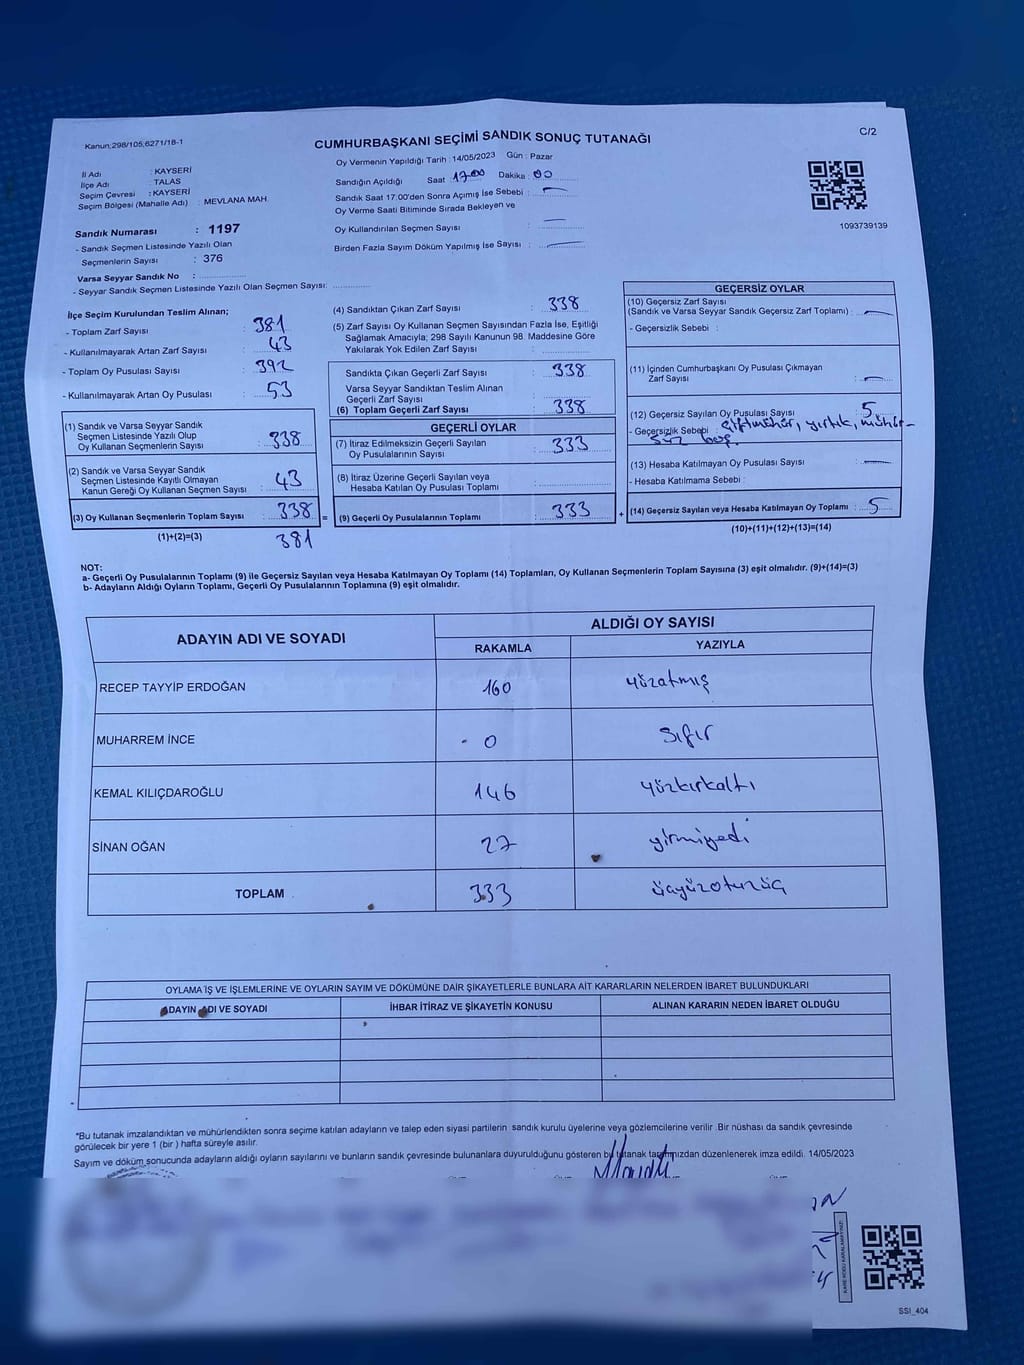 Kanun;298/105,6271/18-1
CUMHURBAŞKANI SEÇİMİ SANDIK SONUÇ TUTANAĞI
C/2
İl Adı : KAYSERİ
İlçe Adı : TALAS
Seçim Çevresi : KAYSERİ
Seçim Bölgesi (Mahalle Adı) : MEVLANA MAH.
Oy Vermenin Yapıldığı Tarih : 14/05/2023 Gün : Pazar
Sandığın Açıldığı Saat 17:00 Dakika : 00
Sandık Saat 17:00'den Sonra Açımış İse Sebebi : —
Oy Verme Saati Bitiminde Sırada Bekleyen ve
Oy Kullandırılan Seçmen Sayısı : —
Birden Fazla Sayım Döküm Yapılmış İse Sayısı : —
1093739139
Sandık Numarası : 1197
- Sandık Seçmen Listesinde Yazılı Olan
Seçmenlerin Sayısı : 376
Varsa Seyyar Sandık No :
- Seyyar Sandık Seçmen Listesinde Yazılı Olan Seçmen Sayısı:
İlçe Seçim Kurulundan Teslim Alınan;
- Toplam Zarf Sayısı : 381
- Kullanılmayarak Artan Zarf Sayısı : 43
- Toplam Oy Pusulası Sayısı : 392
- Kullanılmayarak Artan Oy Pusulası : 53
(1) Sandık ve Varsa Seyyar Sandık
Seçmen Listesinde Yazılı Olup
Oy Kullanan Seçmenlerin Sayısı : 338
(2) Sandık ve Varsa Seyyar Sandık
Seçmen Listesinde Kayıtlı Olmayan
Kanun Gereği Oy Kullanan Seçmen Sayısı : 43
(3) Oy Kullanan Seçmenlerin Toplam Sayısı : 338 =
(1)+(2)=(3) 381
(4) Sandıktan Çıkan Zarf Sayısı : 338
(5) Zarf Sayısı Oy Kullanan Seçmen Sayısından Fazla İse, Eşitliği
Sağlamak Amacıyla; 298 Sayılı Kanunun 98. Maddesine Göre
Yakılarak Yok Edilen Zarf Sayısı :
Sandıkta Çıkan Geçerli Zarf Sayısı : 338
Varsa Seyyar Sandıktan Teslim Alınan
Geçerli Zarf Sayısı :
(6) Toplam Geçerli Zarf Sayısı : 338
GEÇERLİ OYLAR
(7) İtiraz Edilmeksizin Geçerli Sayılan
Oy Pusulalarının Sayısı : 333
(8) İtiraz Üzerine Geçerli Sayılan veya
Hesaba Katılan Oy Pusulası Toplamı :
(9) Geçerli Oy Pusulalarının Toplamı : 333 +
GEÇERSİZ OYLAR
(10) Geçersiz Zarf Sayısı
(Sandık ve Varsa Seyyar Sandık Geçersiz Zarf Toplamı) : —
- Geçersizlik Sebebi :
(11) İçinden Cumhurbaşkanı Oy Pusulası Çıkmayan
Zarf Sayısı : —
(12) Geçersiz Sayılan Oy Pusulası Sayısı : 5
- Geçersizlik Sebebi : Çiftmühür, yırtık, mühür-
süz boş.
(13) Hesaba Katılmayan Oy Pusulası Sayısı : —
- Hesaba Katılmama Sebebi :
(14) Geçersiz Sayılan veya Hesaba Katılmayan Oy Toplamı : 5
(10)+(11)+(12)+(13)=(14)
NOT:
a- Geçerli Oy Pusulalarının Toplamı (9) ile Geçersiz Sayılan veya Hesaba Katılmayan Oy Toplamı (14) Toplamları, Oy Kullanan Seçmenlerin Toplam Sayısına (3) eşit olmalıdır. (9)+(14)=(3)
b- Adayların Aldığı Oyların Toplamı, Geçerli Oy Pusulalarının Toplamına (9) eşit olmalıdır.
ADAYIN ADI VE SOYADI
ALDIĞI OY SAYISI
RAKAMLA YAZIYLA
RECEP TAYYİP ERDOĞAN 160 yüzatmış
MUHARREM İNCE 0 sıfır
KEMAL KILIÇDAROĞLU 146 yüzkırkaltı
SİNAN OĞAN 27 yirmiyedi
TOPLAM 333 üçyüzotuzüç
OYLAMA İŞ VE İŞLEMLERİNE VE OYLARIN SAYIM VE DÖKÜMÜNE DAİR ŞİKAYETLERLE BUNLARA AİT KARARLARIN NELERDEN İBARET BULUNDUKLARI
ADAYIN ADI VE SOYADI İHBAR İTİRAZ VE ŞİKAYETİN KONUSU ALINAN KARARIN NEDEN İBARET OLDUĞU
*Bu tutanak imzalandıktan ve mühürlendikten sonra seçime katılan adayların ve talep eden siyasi partilerin sandık kurulu üyelerine veya gözlemcilerine verilir. Bir nüshası da sandık çevresinde
görülecek bir yere 1 (bir) hafta süreyle asılır.
Sayım ve döküm sonucunda adayların aldığı oyların sayılarını ve bunların sandık çevresinde bulunanlara duyurulduğunu gösteren bu tutanak tarafımızdan düzenlenerek imza edildi. 14/05/2023
SSI_404